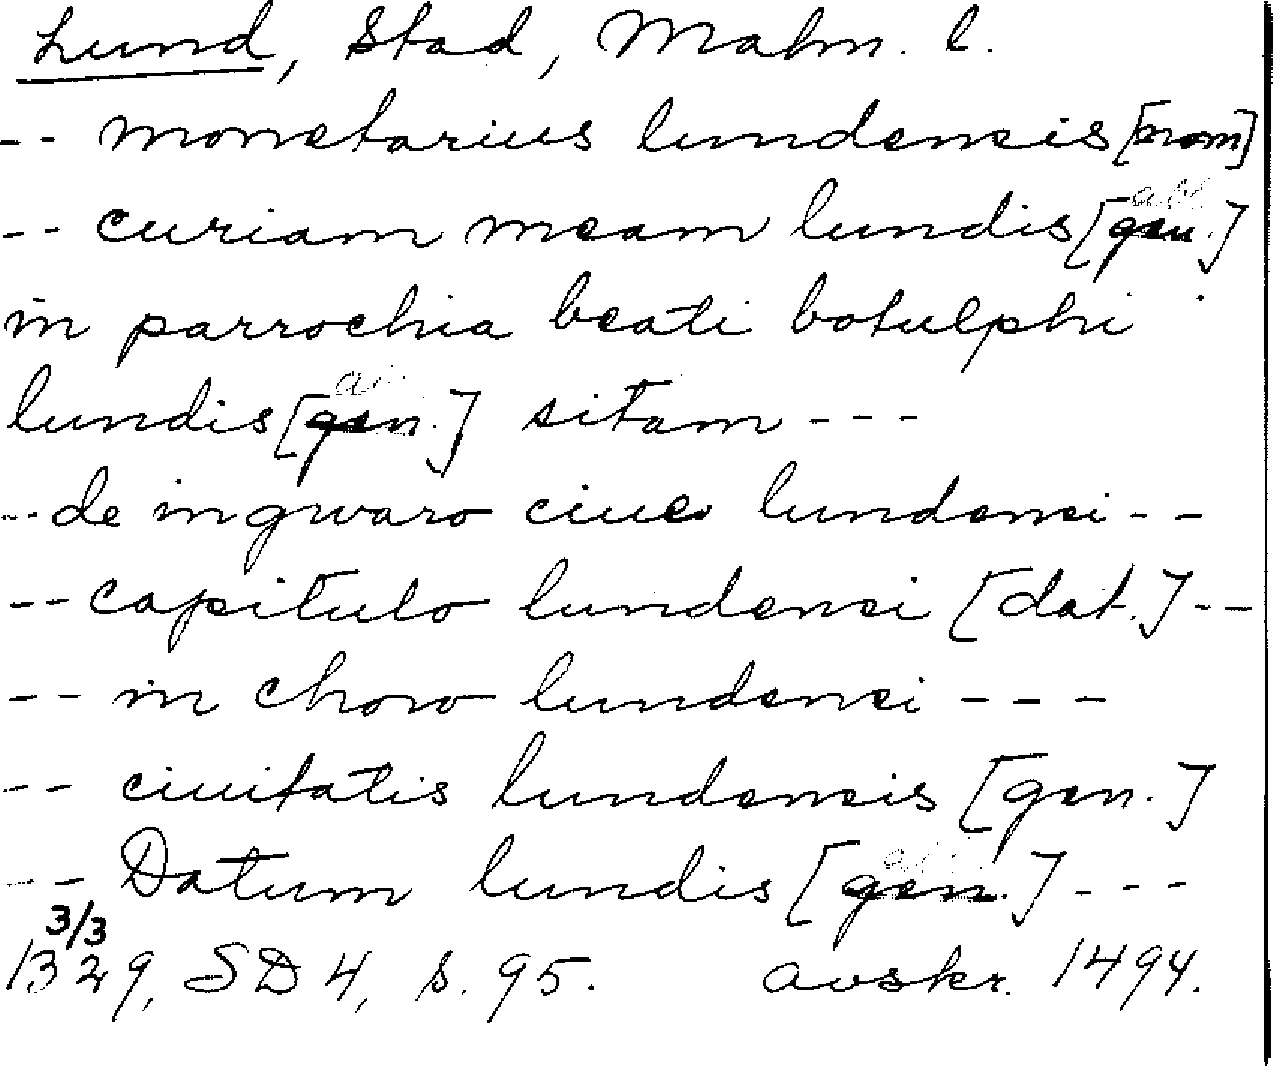 Lund, Stad, Malm. l.
-- monetarius lundensis [nom]
-- curiam meam lundis [gen.] abl
in parrochia beati botulphi
lundis [gen.] sitam ---
-- de ingwaro ciue lundensi --
-- capitulo lundensi [dat.] --
-- in choro lundensi ---
-- ciuitatis lundensis [gen.]
-- Datum lundis [gen.] ---
3/3
1329, SD 4, s. 95. avskr. 1494.